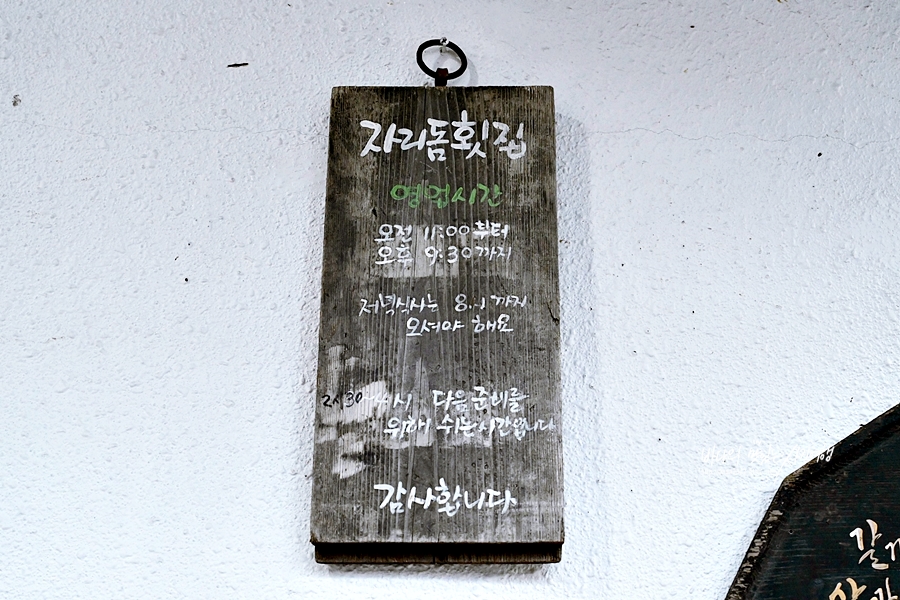 자리돔횟집
영업시간
오전 11:00부터
오후 9:30까지
저녁식사는 8시까지
오셔야 해요
2시30~4시 다음준비를
위해 쉬는시간입니다
감사합니다